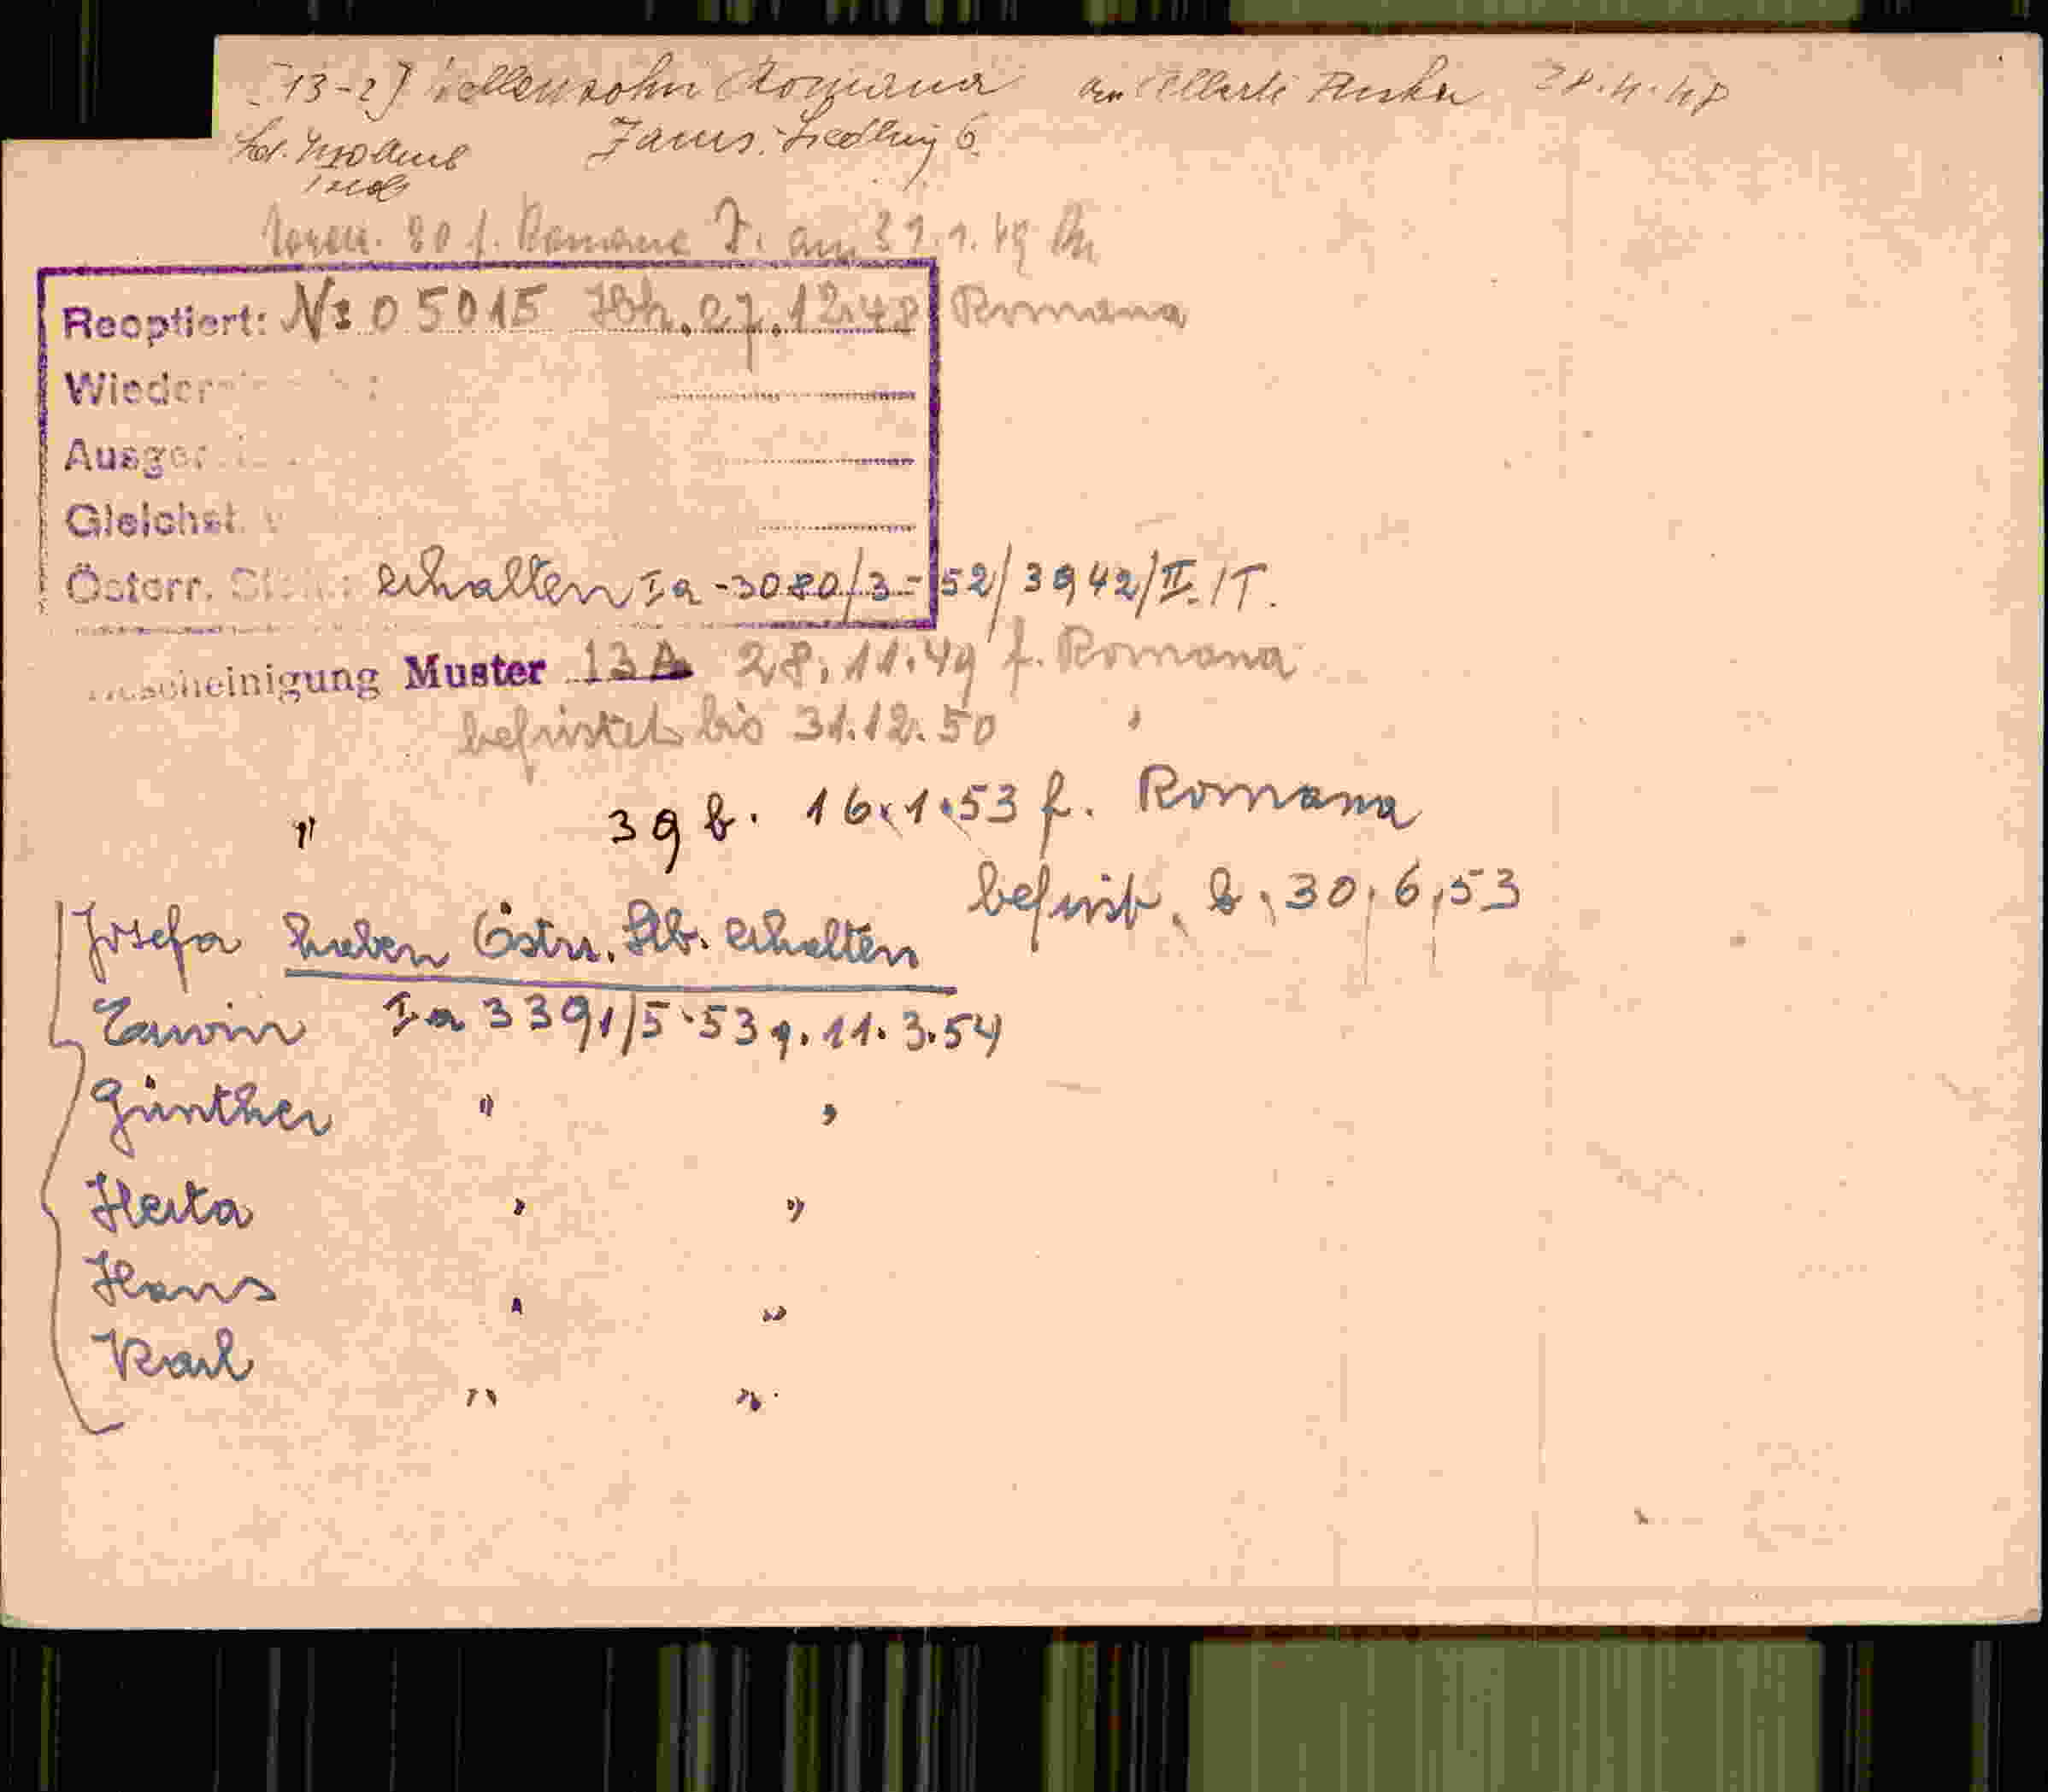 13-2) Romana 28.4.48
Zams. Siedlung 6
80 f. Romana am 31.1.49
Reoptiert: № 05015 27.12.48 Romana
Wieder
Ausge
Gleichst.
Österr. erhalten Ia-3080/3-52/3942/II./T.
scheinigung Muster 13A 28.11.49 f. Romana
befristet bis 31.12.50 "
" 39 b. 16.1.53 f. Romana
befrist. b. 30.6.53
Josefa haben Östrr. Stb. erhalten
Erwin Ia 3391/5-53 v. 11.3.54
Günther " "
Herta " "
Hans " "
Karl " "